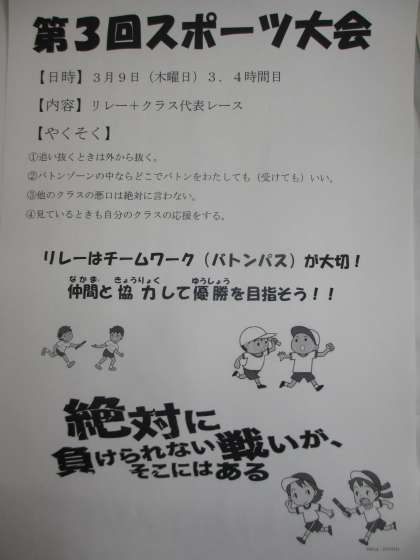 第3回スポーツ大会
【日時】3月9日(木曜日)3.4時間目
【内容】リレー+クラス代表レース
【やくそく】
①追い抜くときは外から抜く。
②バトンゾーンの中ならどこでバトンをわたしても(受けても)いい。
③他のクラスの悪口は絶対に言わない。
④見ているときも自分のクラスの応援をする。
リレーはチームワーク(バトンパス)が大切!
なかま きょうりょく ゆうしょう
仲間と協力して優勝を目指そう!!
絶対に
負けられない戦いが、
そこにはある